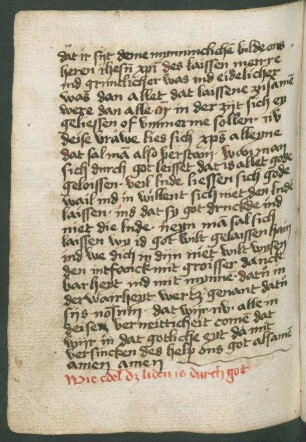 dat ir sijt deme mynnincliche bilde ons
heren ihesu xpi des laissen menre
ind gruntlicher was ind eidelicher
was dan allet dat laissene zusame
weze dan alle die in der zijt sich ey
geliessen of vmmerme sollen
deise vrawe lies sich xps allerme
dat sal ma also verstain wa man
sich durch got leisset dat is allet gode
geloissen veil lude liessen sich gode
wail ind in willent sich niet den lude
laissen ind dat sy got druckde ind
niet die lude neyn ma sal sich
laissen wy id got wilt gelaissen hain
ind we dich in dyn niet wilt wisen
den intfanck mit groisser danck
barheyt ind mit mynne dat in
der wairheyt wertz genant dat in
sijs in
deser verneitticheit come dat
wijr in dat gotliche eyt da mit
versincken des help ons got alsame
amen amen
Wie edel dz liden is durch got